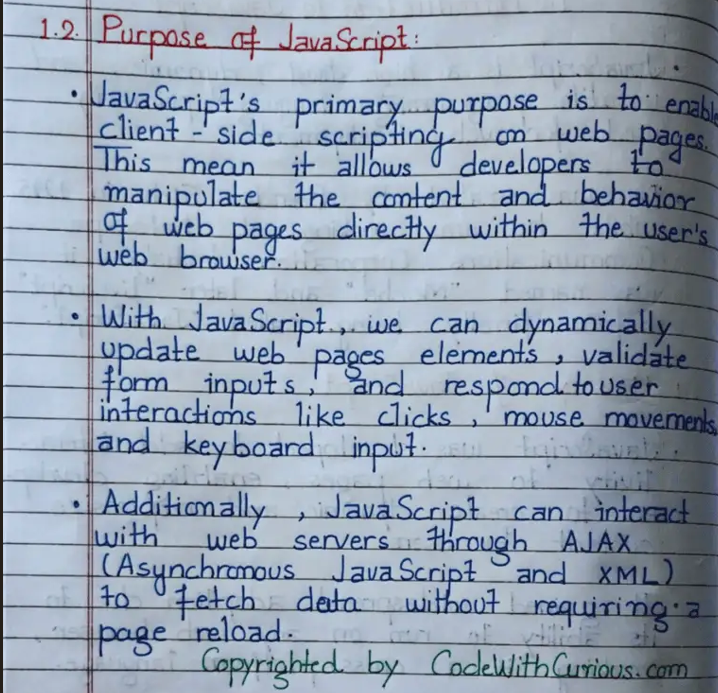 1.2. Purpose of JavaScript:
• JavaScript's primary purpose is to enable
client-side scripting on web pages.
This mean it allows developers to
manipulate the content and behavior
of web pages directly within the user's
web browser.
• With JavaScript, we can dynamically
update web pages elements, validate
form inputs, and respond to user
interactions like clicks, mouse movements,
and keyboard input.
• Additionally, JavaScript can interact
with web servers through AJAX
(Asynchronous JavaScript and XML)
to fetch data without requiring a
page reload.
Copyrighted by CodeWithCurious.com